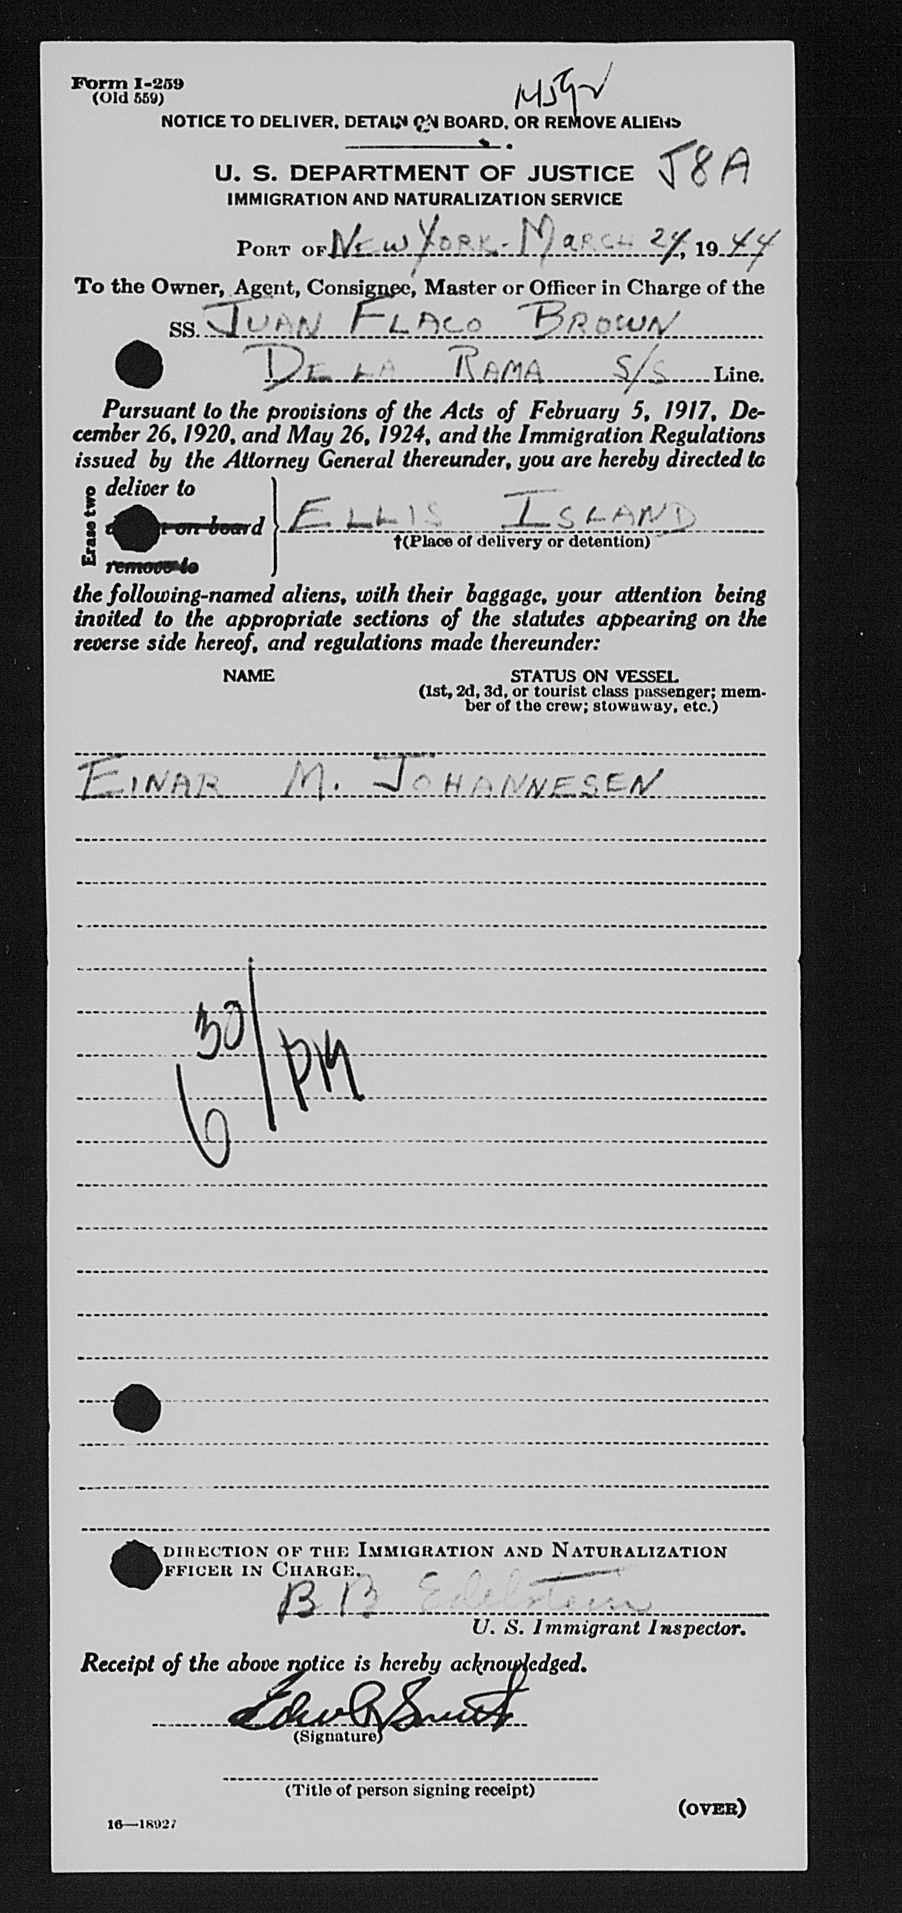 Form I-259
(Old 559)
NOTICE TO DELIVER, DETAIN ON BOARD, OR REMOVE ALIENS
J8A
U. S. DEPARTMENT OF JUSTICE
IMMIGRATION AND NATURALIZATION SERVICE
PORT OF NEW YORK - MARCH 24, 1944
To the Owner, Agent, Consignee, Master or Officer in Charge of the
SS. JUAN FLACO BROWN
DE LA RAMA S/S Line.
Pursuant to the provisions of the Acts of February 5, 1917, De-
cember 26, 1920, and May 26, 1924, and the Immigration Regulations
issued by the Attorney General thereunder, you are hereby directed to
Erase two
deliver to
on board
remove to
ELLIS ISLAND
†(Place of delivery or detention)
the following-named aliens, with their baggage, your attention being
invited to the appropriate sections of the statutes appearing on the
reverse side hereof, and regulations made thereunder:
NAME STATUS ON VESSEL
(1st, 2d, 3d, or tourist class passenger; mem-
ber of the crew; stowaway, etc.)
EINAR M. JOHANNESEN
6 30/PM
DIRECTION OF THE IMMIGRATION AND NATURALIZATION
FFICER IN CHARGE.
B B Edelstein
U. S. Immigrant Inspector.
Receipt of the above notice is hereby acknowledged.
Edw R Smith
(Signature)
(Title of person signing receipt)
(OVER)
16—18927